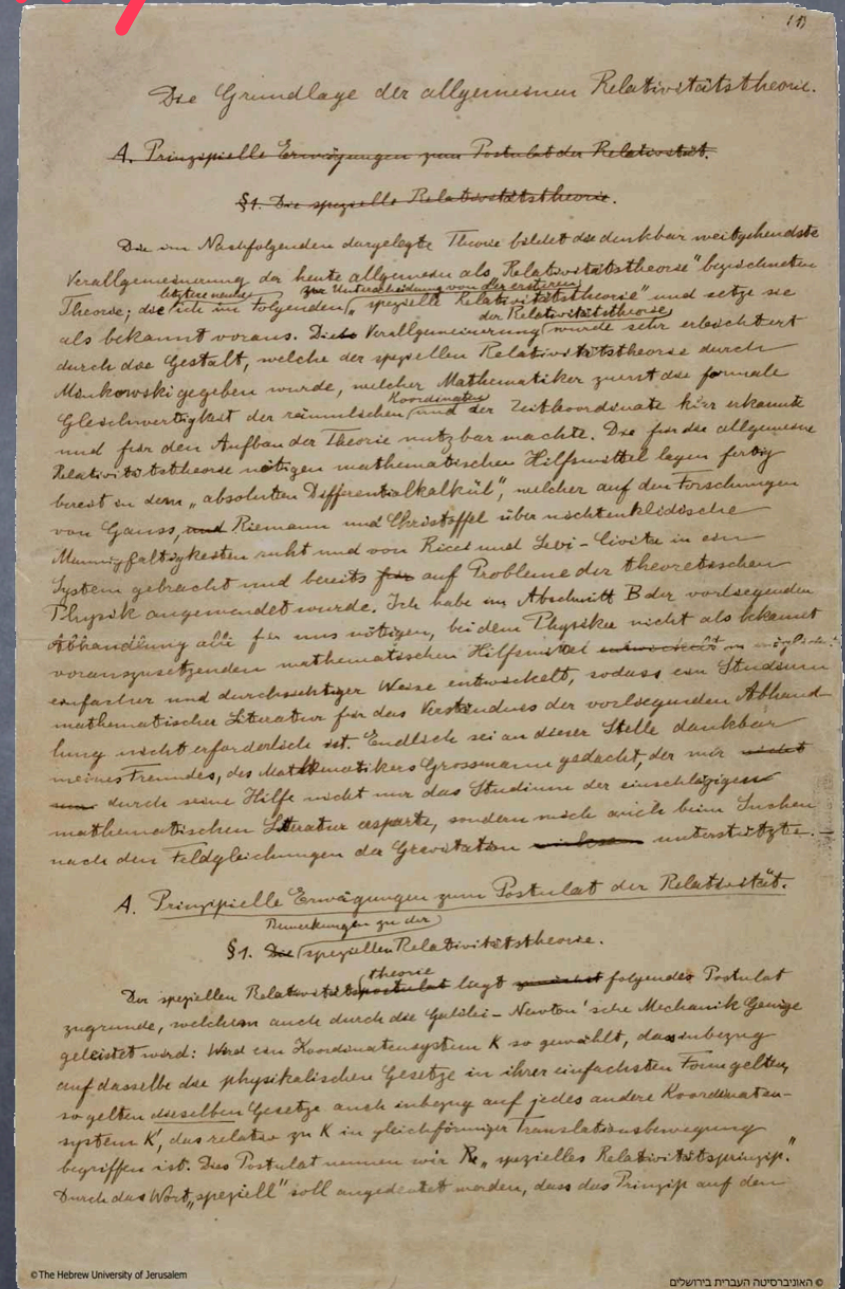 (1)
Die Grundlage der allgemeinen Relativitätstheorie.
A. Prinzipielle Erwägungen zum Postulat der Relativität.
§1. Die spezielle Relativitätstheorie.
Die im Nachfolgenden dargelegte Theorie bildet die denkbar weitgehendste
Verallgemeinerung der heute allgemein als „Relativitätstheorie" bezeichneten
letztere nenne zur Unterscheidung von der ersteren
Theorie; die ich im Folgenden „spezielle Relativitätstheorie" und setze sie
der Relativitätstheorie
als bekannt voraus. Die Verallgemeinerung wurde sehr erleichtert
durch die Gestalt, welche der speziellen Relativitätstheorie durch
Minkowski gegeben wurde, welcher Mathematiker zuerst die formale
Koordinaten
Gleichwertigkeit der räumlichen und der Zeitkoordinate klar erkannte
und für den Aufbau der Theorie nutzbar machte. Die für die allgemeine
Relativitätstheorie nötigen mathematischen Hilfsmittel lagen fertig
bereit in dem „absoluten Differentialkalkül", welcher auf den Forschungen
von Gauss, und Riemann und Christoffel über nichteuklidische
Mannigfaltigkeiten ruht und von Ricci und Levi-Civita in ein
System gebracht und bereits für auf Probleme der theoretischen
Physik angewendet wurde. Ich habe im Abschnitt B der vorliegenden
Abhandlung alle für uns nötigen, bei dem Physiker nicht als bekannt
vorauszusetzenden mathematischen Hilfsmittel entwickelt in möglichst
einfacher und durchsichtiger Weise entwickelt, sodass ein Studium
mathematischer Literatur für das Verständnis der vorliegenden Abhand-
lung nicht erforderlich ist. Endlich sei an dieser Stelle dankbar
meines Freundes, des Mathematikers Grossmann gedacht, der mir nicht
nur durch seine Hilfe nicht nur das Studium der einschlägigen
mathematischen Literatur ersparte, sondern mich auch beim Suchen
nach den Feldgleichungen der Gravitation unterstützte.
A. Prinzipielle Erwägungen zum Postulat der Relativität.
Bemerkungen zu der
§1. Die speziellen Relativitätstheorie.
theorie
Der speziellen Relativitätspostulat liegt zunächst folgendes Postulat
zugrunde, welchem auch durch die Galilei-Newton'sche Mechanik Genüge
geleistet wird: Wird ein Koordinatensystem K so gewählt, dass inbezug
auf dasselbe die physikalischen Gesetze in ihrer einfachsten Form gelten,
so gelten dieselben Gesetze auch inbezug auf jedes andere Koordinaten-
system K', das relativ zu K in gleichförmiger Translationsbewegung
begriffen ist. Dies Postulat nennen wir „spezielles Relativitätsprinzip."
Durch das Wort „speziell" soll angedeutet werden, dass das Prinzip auf den
© The Hebrew University of Jerusalem
© האוניברסיטה העברית בירושלים